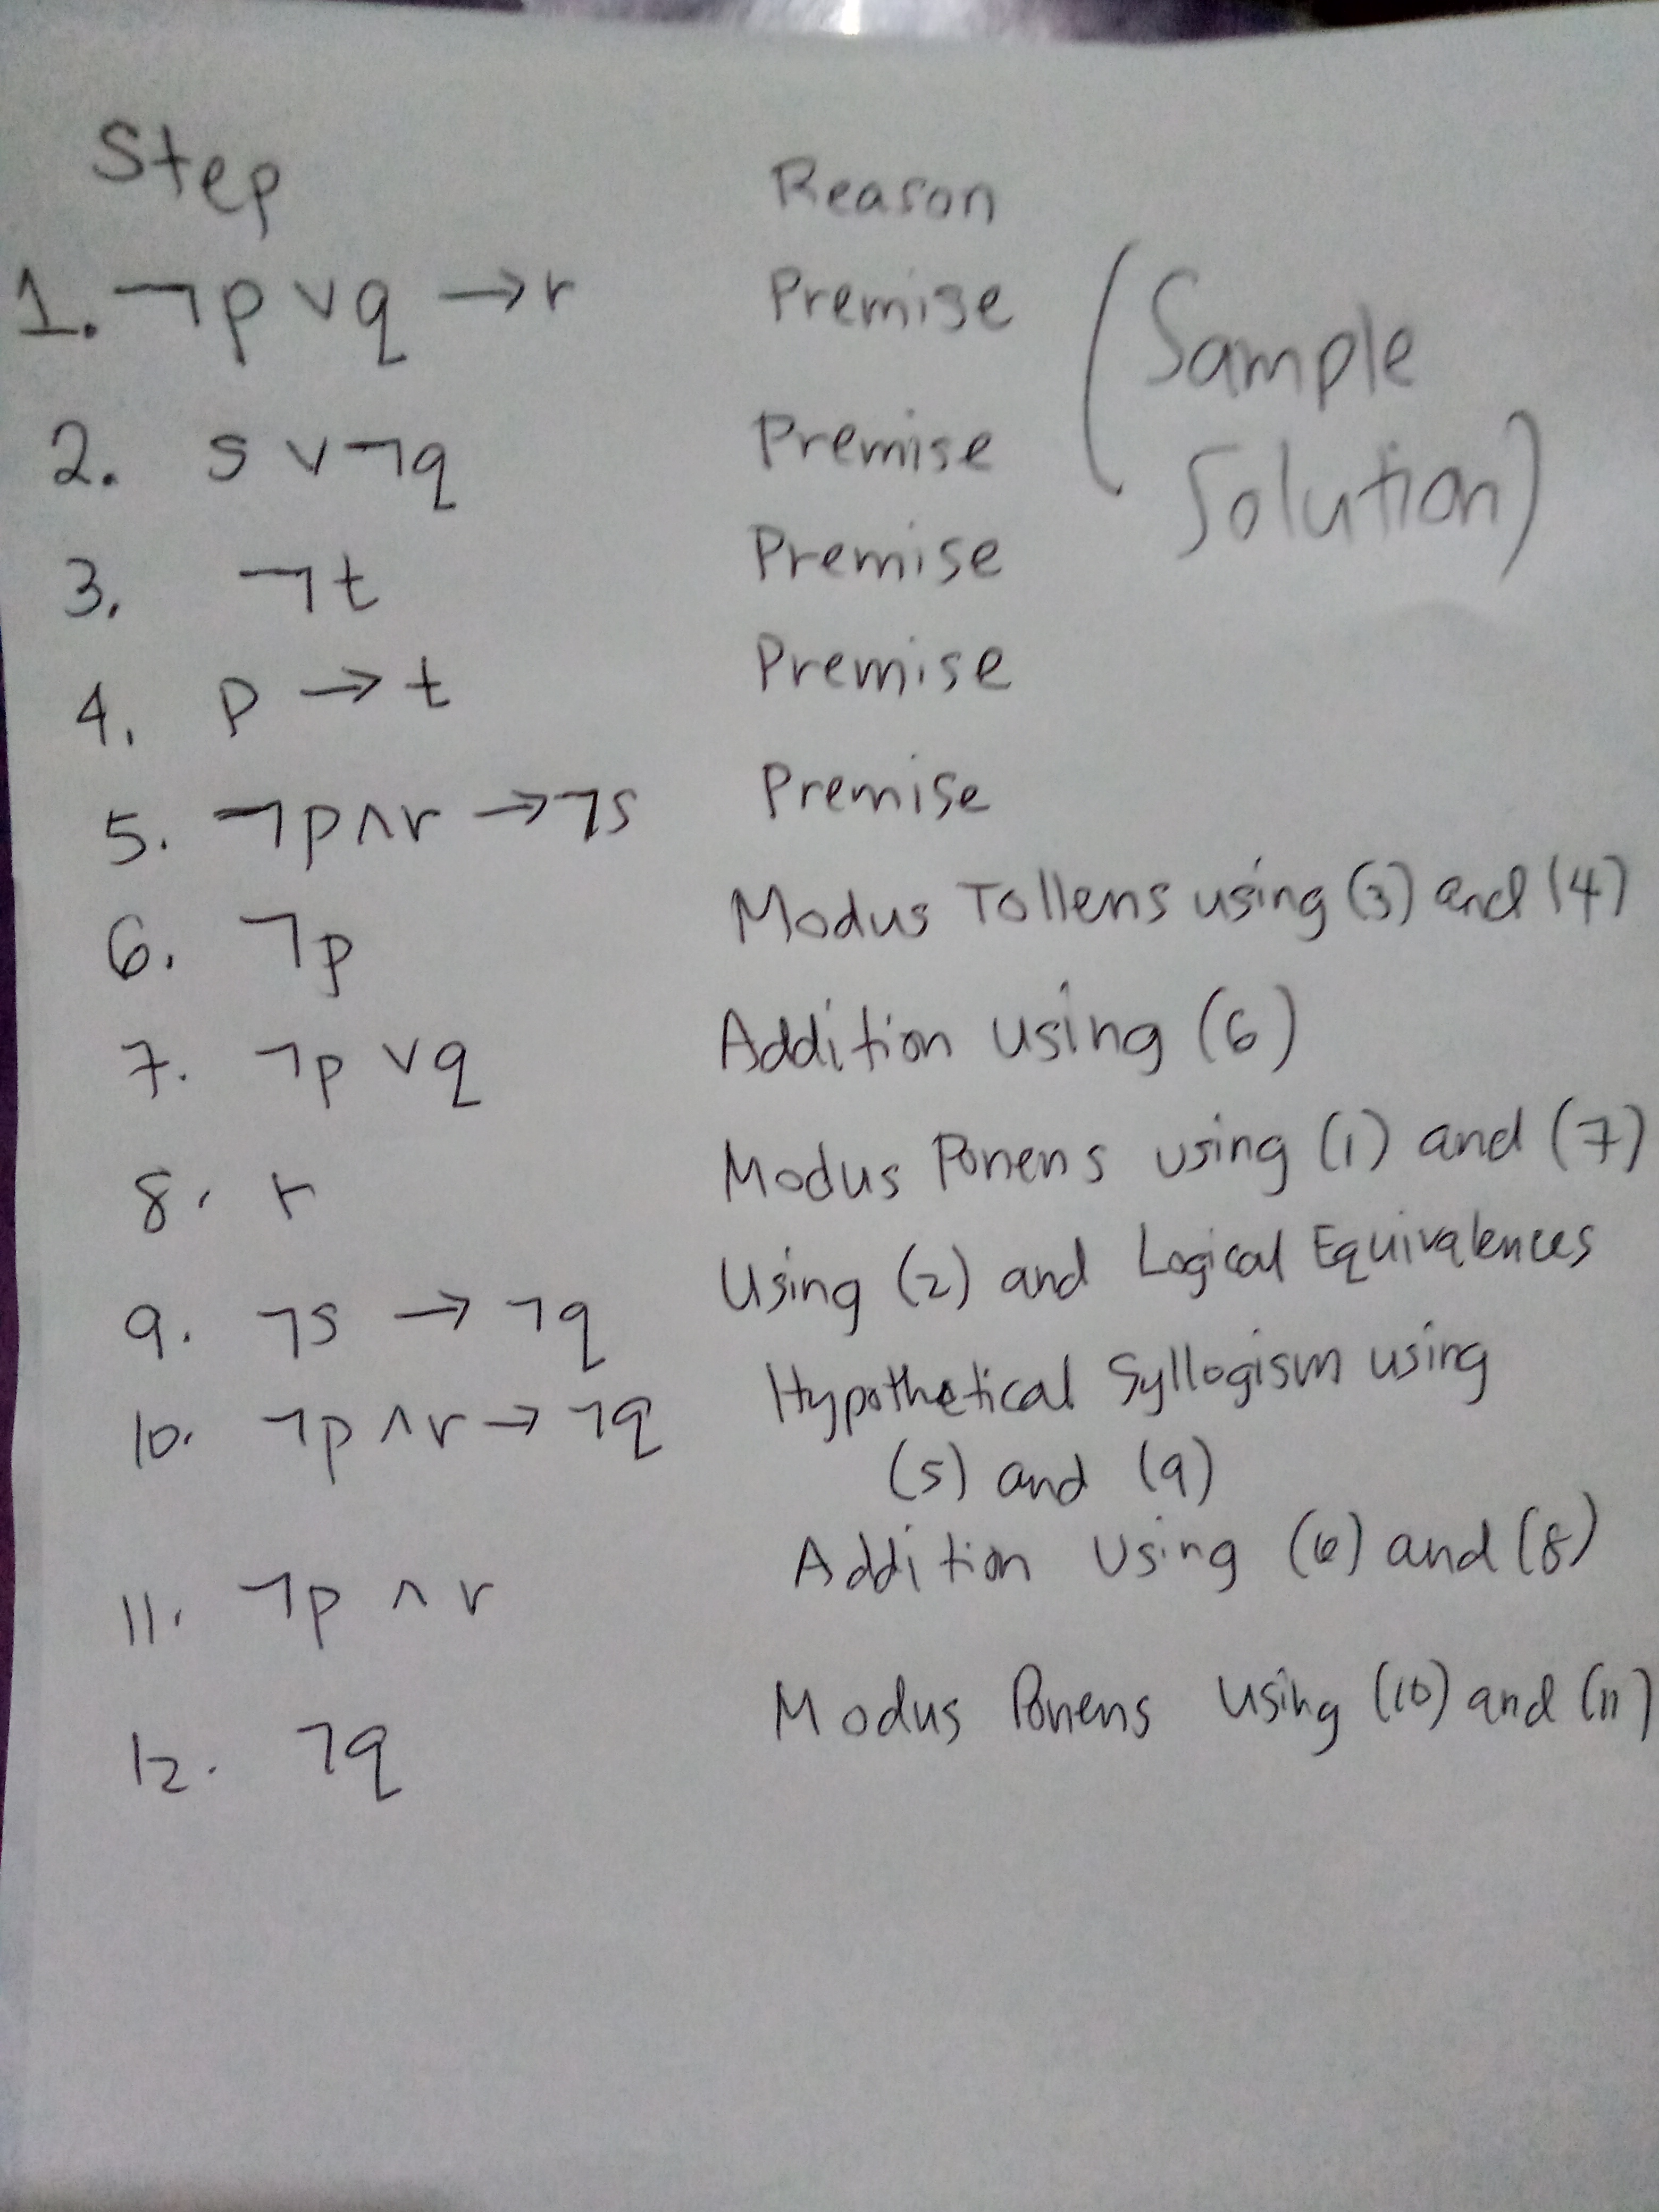 Step Reason
1. ¬p ∨ q → r Premise (Sample
2. s ∨ ¬q Premise Solution)
3. ¬t Premise
4. p → t Premise
5. ¬p ∧ r → ¬s Premise
6. ¬p Modus Tollens using (3) and (4)
7. ¬p ∨ q Addition using (6)
8. r Modus Ponens using (1) and (7)
9. ¬s → ¬q Using (2) and Logical Equivalences
10. ¬p ∧ r → ¬q Hypothetical Syllogism using
(5) and (9)
11. ¬p ∧ r Addition Using (6) and (8)
12. ¬q Modus Ponens Using (10) and (11)